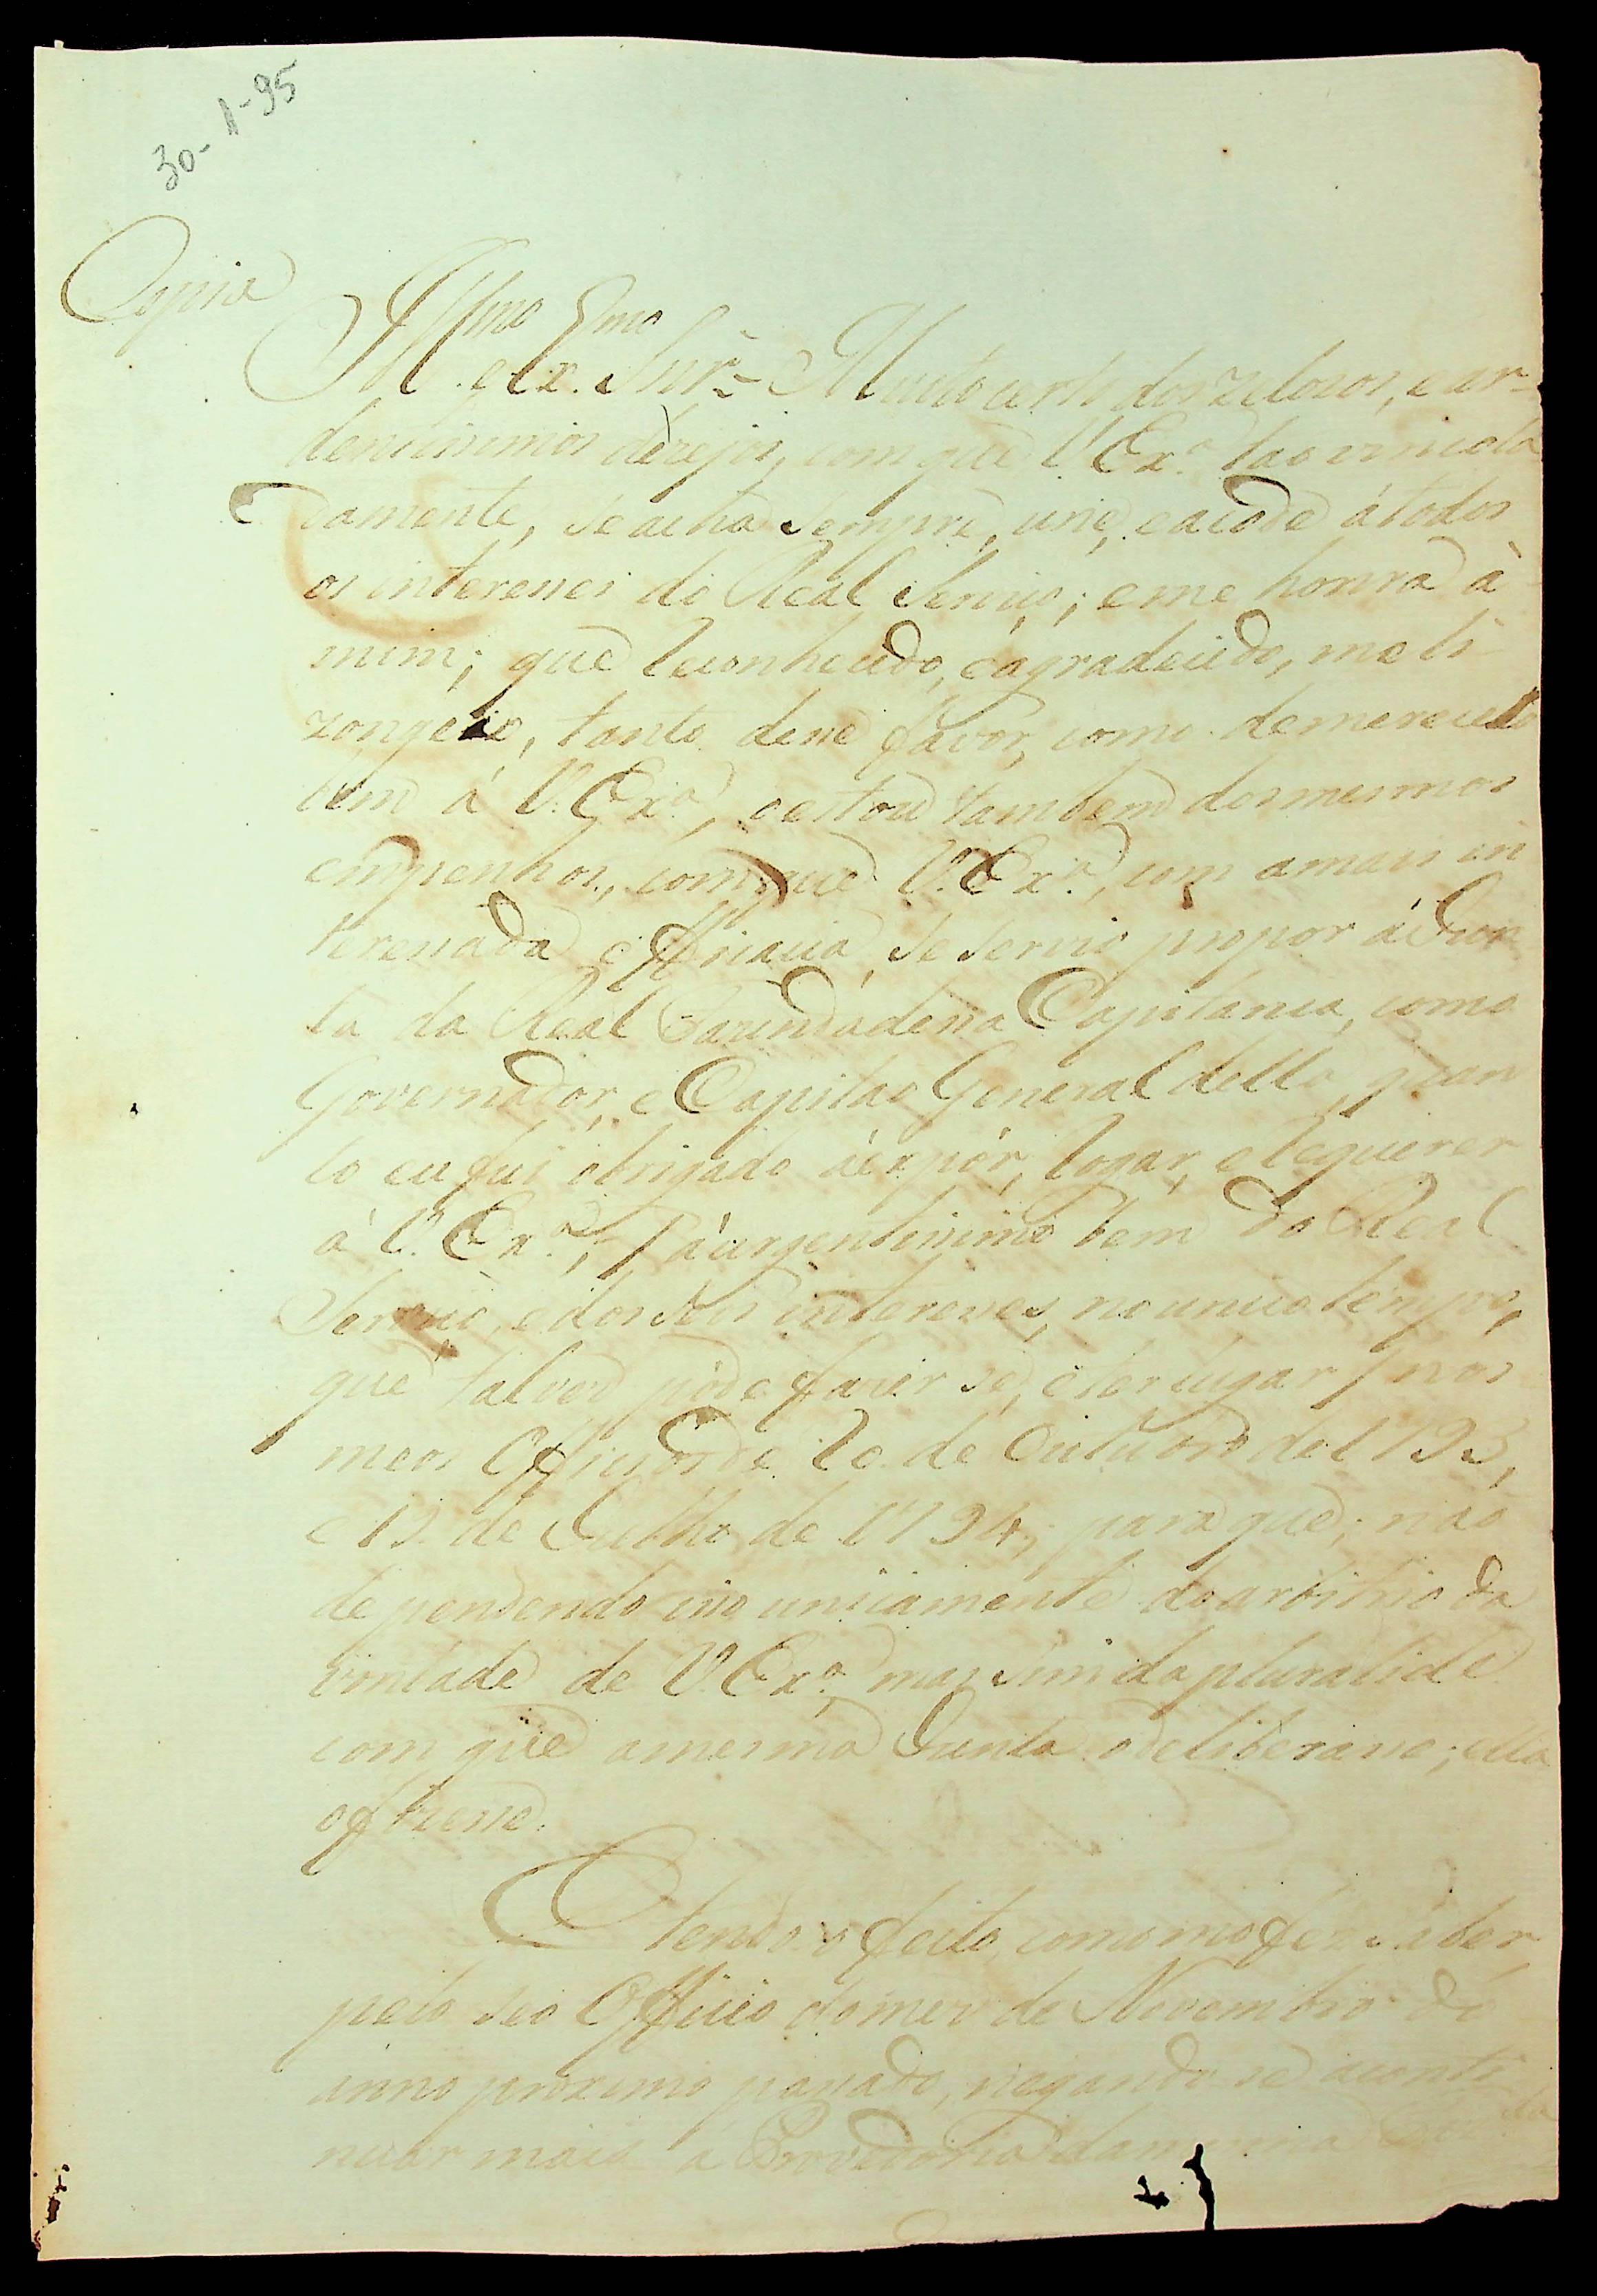 30-1-95
Copia
Ill.mo e Ex.mo Snr. = Muito certo dos zelosos, e ar-
dentissimos dezejos, com que V. Ex.a tao vincula
damente, se acha sempre, une, e acode á todos
os interesses do Real Serviço; e me honra à
mim; que reconhecido, e agradecido, me li-
zongeio, tanto desse favor, como de merecello
bem á V. Ex.a, o estou tambem dos mesmos
empenhos, com que V. Ex.a, com a mais in
teressada efficacia, se servio propor á Jun
ta da Real Fazenda dessa Capitania, como
Governador, e Capitao General della, quan
to eu fui obrigado á expôr, rogar, e requerer
á V. Ex.a, / á urgentissimo bem do Real
Serviço, e dos seos interesses, no unico tempo,
que talvez póde fazer se, e ter lugar / nos
meos Officios de 10 de Outubro de 1793,
e 19 de Julho de 1794; para que; não
dependendo isso unicamente do arbitrio da
vontade de V. Ex.a, mas sim da pluralid.e
com que a mesma Junta o deliberasse; ella
o fizesse.
E tendo o feito, como mo fez saber
pelo seo Officio do mez de Novembro do
anno proximo passado, negando se a conti
nuar mais a Provedoria da minha